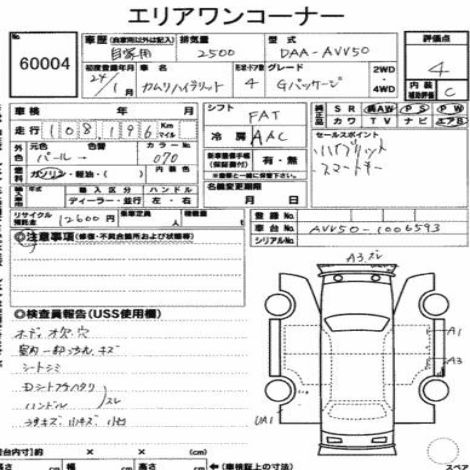 エリアワンコーナー
60004
車歴 (自家用以外は記入) 自家用
排気量 2500
型式 DAA-AVV50
評価点 4
初度登録年月 24/1月
車名 カムリハイブリッド
形状・ドア数 4
グレード Gパッケージ
2WD・4WD
内装補助評価 C
車検 年 月
走行 108,196 Km マイル
外色 元色 パール→
色番
カラーNo. 070
燃料 ガソリン・軽油・( )
輸入車 年式
輸入区分 ディーラー・並行
ハンドル 左・右
リサイクル預託金 12600円
乗車定員 人
積載量
シフト FAT
冷房 AAC
新車整備手帳(保証書付) 有・無
名義変更期限 月 日
純正品 SR 純AW PS PW
カワ TV ナビ エアB
セールスポイント
ハイブリット
スマートキー
登録No.
車台No. AVV50-1006593
シリアルNo.
◎注意事項(修復・不具合箇所および状態等)
◎検査員報告(USS使用欄)
室内一部
シートシミ
ハンドル スレ
A3.スレ
A1
A3
UA1
車台寸
× × (cm)
高さ cm 幅 cm 高さ cm
(車検証上の寸法)